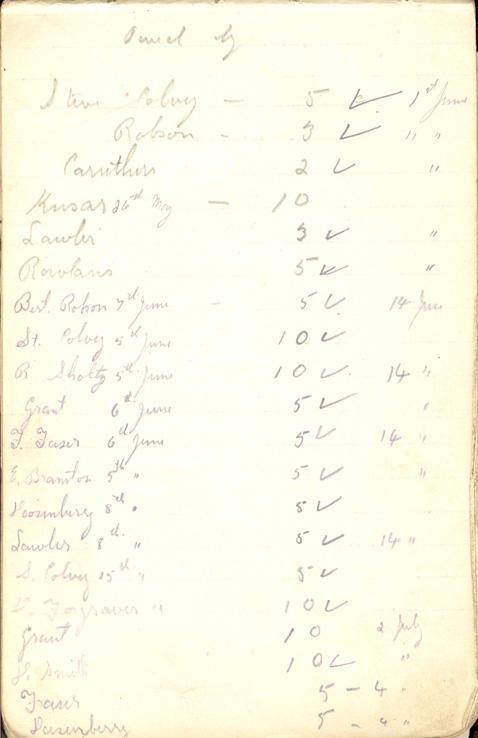 Steve Colvey — 5 ✓ 1st June
Robson - 3 ✓ " "
Caruthers 2 ✓ "
Kusar 26th May — 10
Lawler 3 ✓ "
Rowlans 5 ✓ "
Bert. Rohon 7th June - 5 ✓ 14 June
St. Colvey 5th June 10 ✓
R Sholtz 5th June 10 ✓ 14 "
Grant 6th June 5 ✓ "
6th June 5 ✓ 14 "
E. Bramton 5th " 5 ✓ "
8th " 5 ✓
Lawler 8th " 5 ✓ 14 "
S. Colvey 15th " 5 ✓
Forgraves " 10 ✓
Grant 10 2 July
Smith 10 ✓ "
Fraser 5 - 4 "
5 - 4 "